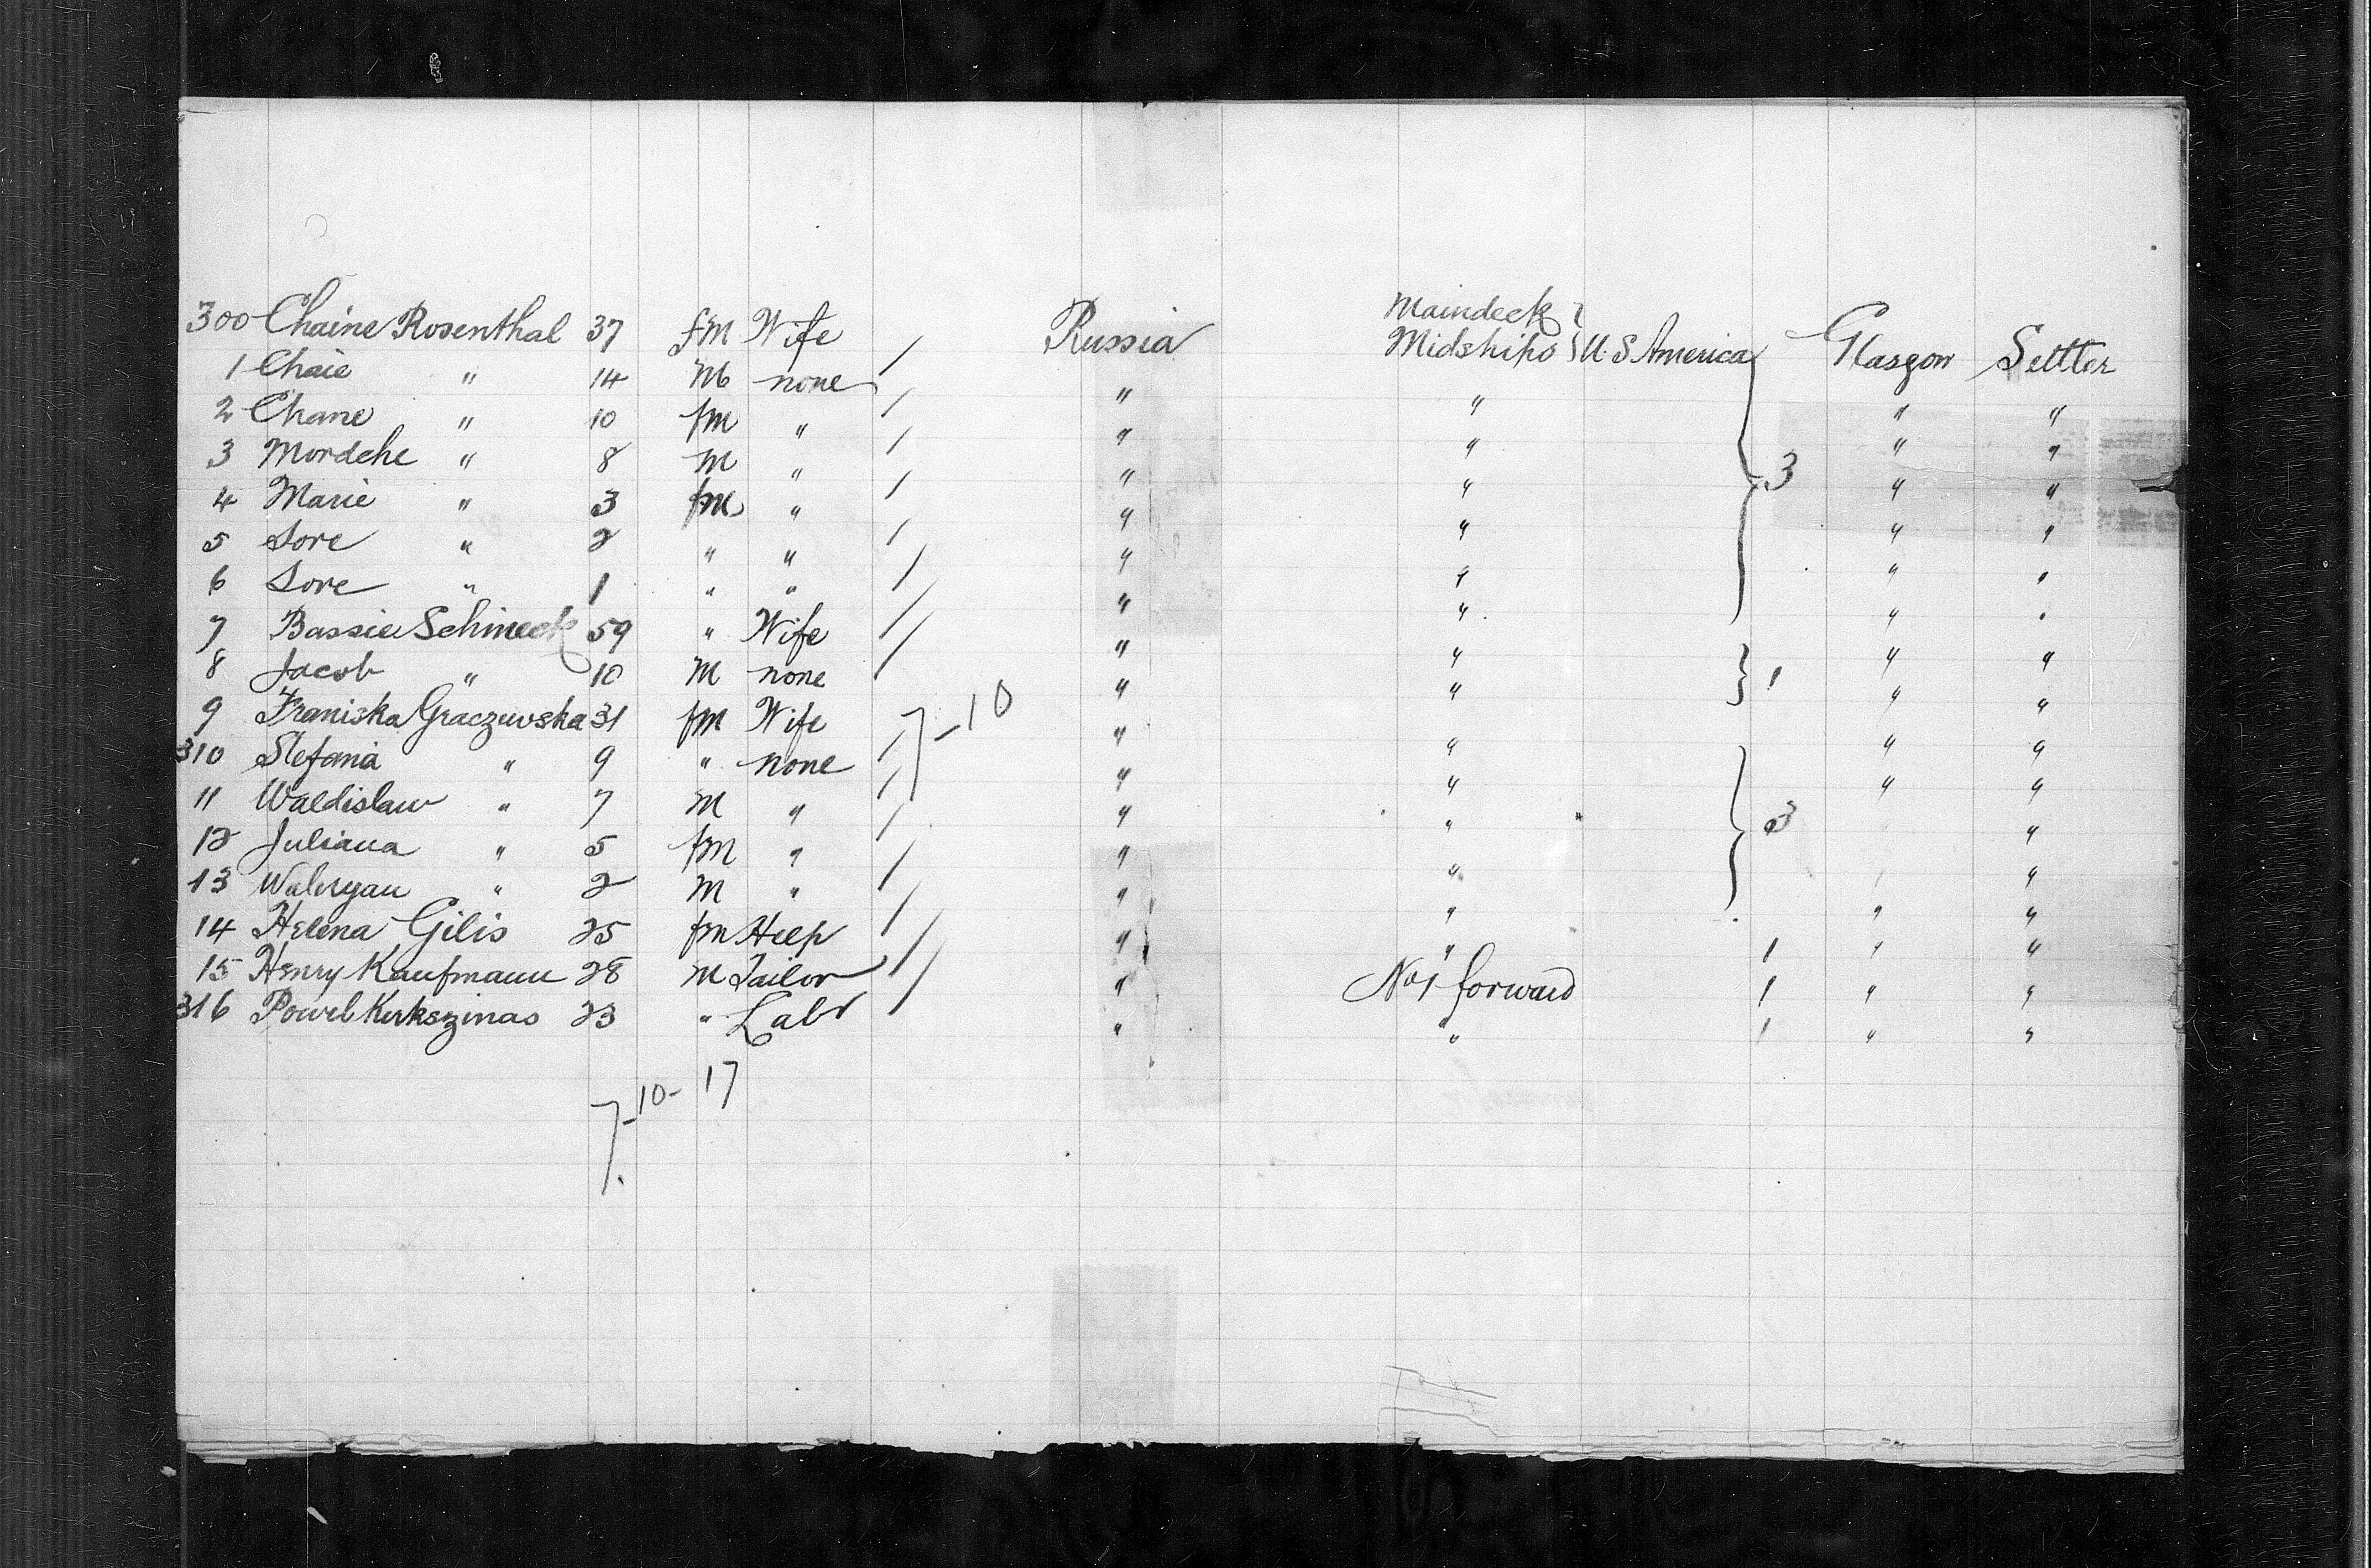 300 Chaine Rosenthal 37 fm Wife / Russia Maindeck Midships } U.S America Glasgow Settler
1 Chaie " 14 M none / " " " "
2 Chane " 10 fm " / " " " "
3 Mordche " 8 M " / " " 3 " "
4 Marie " 3 fm " / " " " "
5 Sore " 2 " " / " " " "
6 Sore " 1 " " / " " " "
7 Bassie Schineck 59 " Wife / " " " "
8 Jacob " 10 M none / " " 1 " "
9 Franiska Graczuwska 31 fm Wife 7-10 " " " "
310 Stefania " 9 " none / " " " "
11 Waldislaw " 7 M " / " " 3 "
12 Juliana " 5 fm " / " " "
13 Waleryan " 2 M " / " " " "
14 Helena Gilis 25 fm Help / " " 1 " "
15 Henry Kaufmann 28 M Tailor / " No 1 forward 1 " "
316 Powel Kerkszinas 23 " Labr / " " 1 " "
7-10-17